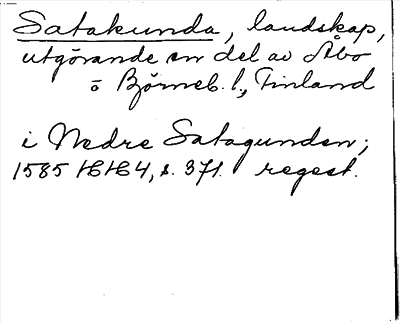 Satakunda, landskap,
utgörande en del av Åbo
o Björneb. l., Finland
i Nedre Satagunden;
1585 HH 4, s. 371. regest.